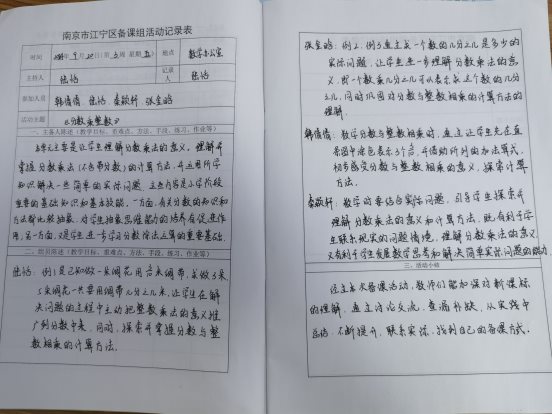 南京市江宁区备课组活动记录表
时间 年9月20日(第3周 星期五) 地点 数学办公室
主持人 陆恬 记录人 陆恬
参加人员 韩倩倩 陆恬 秦敏轩 张金晗
活动主题 《分数乘整数》
一、主备人陈述（教学目标、重难点、方法、手段、练习、作业等）
本单元主要是让学生理解分数乘法的意义，理解并
掌握分数乘法（不含带分数）的计算方法，并运用所学
知识解决一些简单的实际问题，这些内容是小学阶段
重要的基础知识和基本技能，一方面，有关分数的知识和
方法都比较抽象，对学生抽象思维能力的培养有促进作
用，另一方面，又是学生进一步学习分数除法运算的重要基础。
二、组员陈述（教学目标、重难点、方法、手段、练习、作业等）
陆恬：例1是已知做一朵绸花用几分米绸带，求做3朵、
5朵绸花一共要用绸带几分之几米，让学生在解
决问题的过程中主动把整数乘法的意义推
广到分数中来，同时，探索并掌握分数与整
数相乘的计算方法。
张金晗：例2、例3通过求一个数的几分之几是多少的
实际问题，让学生进一步理解分数乘法的意
义，即一个数乘几分之几可以表示求这个数的几分
之几，同时巩固对分数与整数相乘的计算方法的
理解。
韩倩倩：教学分数与整数相乘时，通过让学生先在直
条图中涂色表示3个，并借助所列的加法算式，
初步感受分数与整数相乘的意义，探索计算
方法。
秦敏轩：教学时要结合实际问题，引导学生探索并
理解分数乘法的意义和计算方法，既有利于学
生联系现实的问题情境，理解分数乘法的意义，
又有利于学生发展数学思考和解决简单实际问题的能力
三、活动小结
经过本次备课活动，教师们能加深对新课标
的理解，通过讨论交流，查漏补缺，从实践中
总结，不断提升，联系实际，找到自己的备课方式。